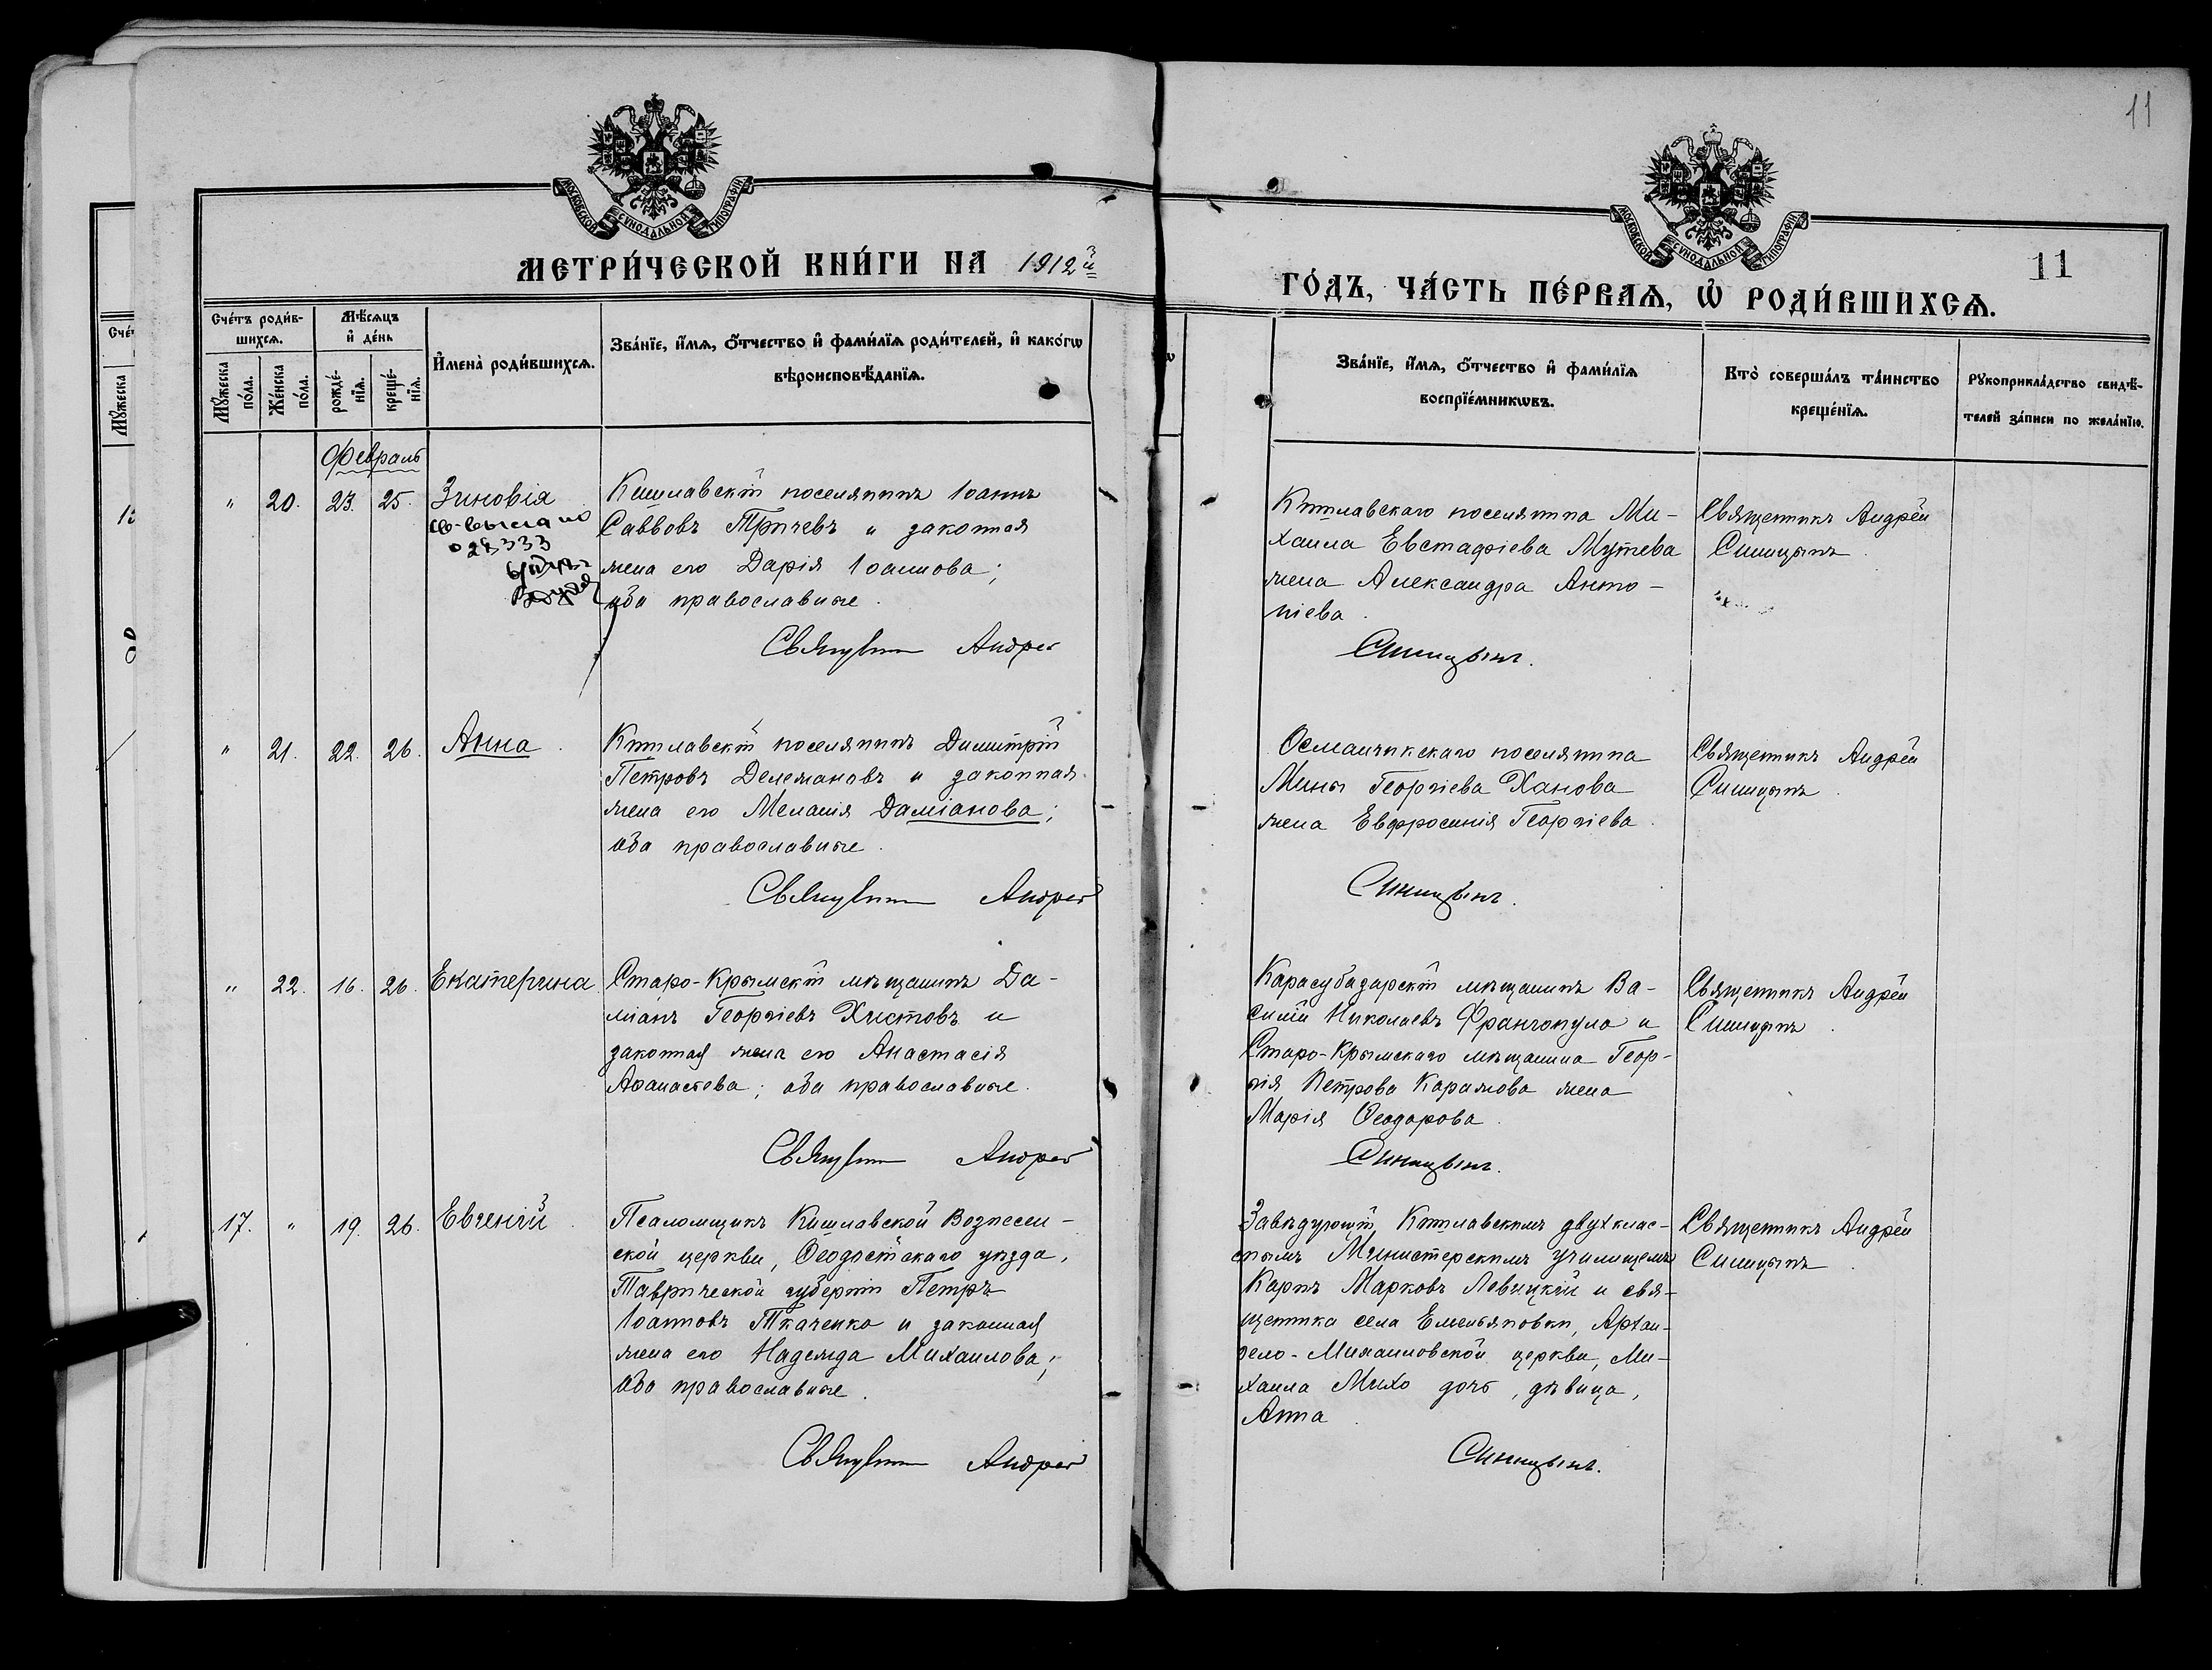 11
МОСКОВСКОЙ СѴНОДАЛЬНОЙ ТИПОГРАФІИ
МОСКОВСКОЙ СѴНОДАЛЬНОЙ ТИПОГРАФІИ
МЕТРИ́ЧЕСКОЙ КНИ́ГИ НА 1912й
ГО́ДЪ, ЧА́СТЬ ПЕ́РВАѦ, Ѽ РОДИ́ВШИХСѦ.
11
Сче́тъ роди́в-
шихсѧ.
Мѣ́сѧцъ
и҆ де́нь
И҆мена̀ роди́вшихсѧ.
Зва́нїе, и҆́мѧ, ѻ҆́тчество и҆ фами́лїѧ роди́телей, и҆ како́гѡ
вѣроисповѣ́данїѧ.
Мꙋ́жеска
по́ла.
Же́нска
по́ла.
рожде́-
нїѧ.
креще́-
нїѧ.
Зва́нїе, и҆́мѧ, ѻ҆́тчество и҆ фами́лїѧ
воспрїе́мникѡвъ.
Кто̀ соверша́лъ та́инство
креще́нїѧ.
Рꙋкоприкла́дство свидѣ́-
телей за́писи по жела́нїю.
Февраль
" 20. 23. 25. Зиновія
св-выслано
028333
Кишлавскій поселянинъ Іоаннъ
Саввовъ Тричевъ и законная
жена его Дарія Іоаннова;
оба православные.
Священникъ Андрей
Кишлавскаго поселянина Ми-
хаила Евстафіева Мутева
жена Александра Анто-
ніева.
Синицынъ.
Священникъ Андрей
Синицынъ.
" 21. 22. 26. Анна.
Кишлавскій поселянинъ Димитрій
Петровъ Делемановъ и законная
жена его Меланія Даміанова;
оба православные.
Священникъ Андрей
Османчикскаго поселянина
Мины Георгіева Ханова
жена Евфросинія Георгіева.
Синицынъ.
Священникъ Андрей
Синицынъ.
" 22. 16. 26. Екатерина.
Старо-Крымскій мѣщанинъ Да-
міанъ Георгіевъ Христовъ и
законная жена его Анастасія
Аѳанасіева; оба православные.
Священникъ Андрей
Карасубазарскій мѣщанинъ Ва-
силій Николаевъ Франгопуло и
Старо-Крымскаго мѣщанина Геор-
гія Петрова Карамова жена
Марія Ѳеодорова.
Синицынъ.
Священникъ Андрей
Синицынъ.
17. " 19. 26. Евгеній.
Псаломщикъ Кишлавской Вознесен-
ской церкви, Ѳеодосійскаго уѣзда,
Таврической губерніи Петръ
Іоанновъ Ткаченко и законная
жена его Надежда Михаилова;
оба православные.
Священникъ Андрей
Завѣдующій Кишлавскимъ двухклас-
снымъ Министерскимъ училищемъ
Карпъ Марковъ Левицкій и свя-
щенника села Емельяновки, Архан-
гело-Михаиловской церкви, Ми-
хаила Михо дочь, дѣвица,
Анна.
Синицынъ.
Священникъ Андрей
Синицынъ.